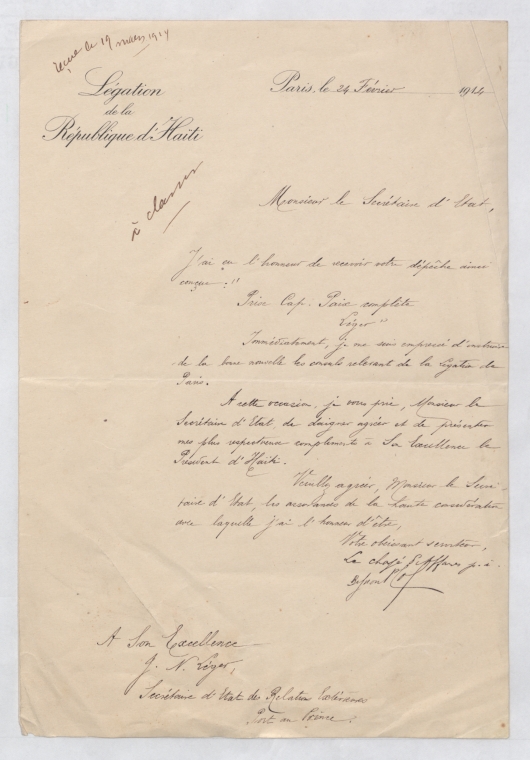 reçue le 19 mars 1914
Légation
de la
République d'Haïti
Paris, le 24 Février 1914
à classer
Monsieur le Secrétaire d'Etat,
J'ai eu l'honneur de recevoir votre dépêche ainsi
conçue : "
Prise Cap. Paix complète
Léger"
Immédiatement, je me suis empressé d'instruire
de la bonne nouvelle les consuls relevant de la Légation de
Paris.
A cette occasion, je vous prie, Monsieur le
Secrétaire d'Etat, de daigner agréer et de présenter
mes plus respectueux compliments à Son Excellence le
Président d'Haïti.
Veuillez agréer, Monsieur le Secré-
taire d'Etat, les assurances de la haute considération
avec laquelle j'ai l'honneur d'être,
Votre obéissant serviteur,
Le chargé d'Affaires p. i.
A Son Excellence
J. N. Léger,
Secrétaire d'Etat des Relations Extérieures
Port au Prince.